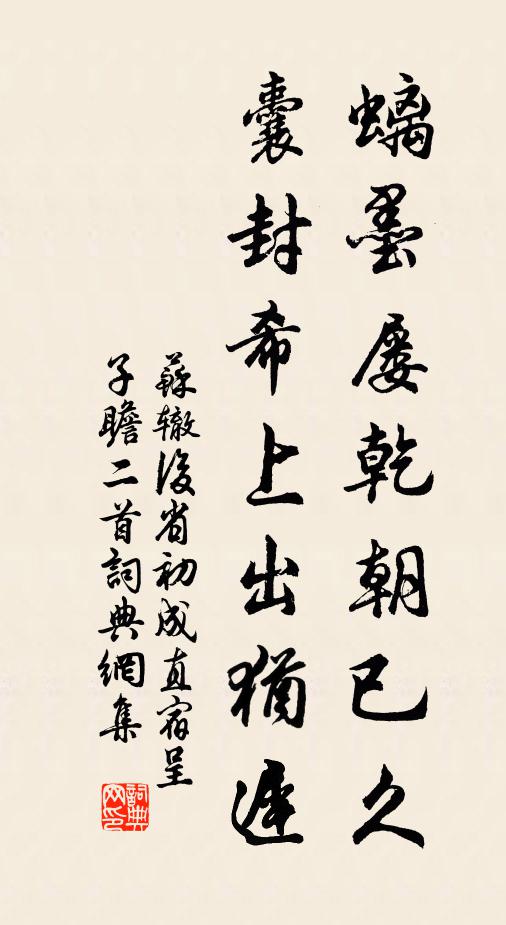 螭墨屡乾朝已久
囊封希上出猶遲
蘇辙後省初成直宿呈
子瞻二首詞典網集
詞典
网印